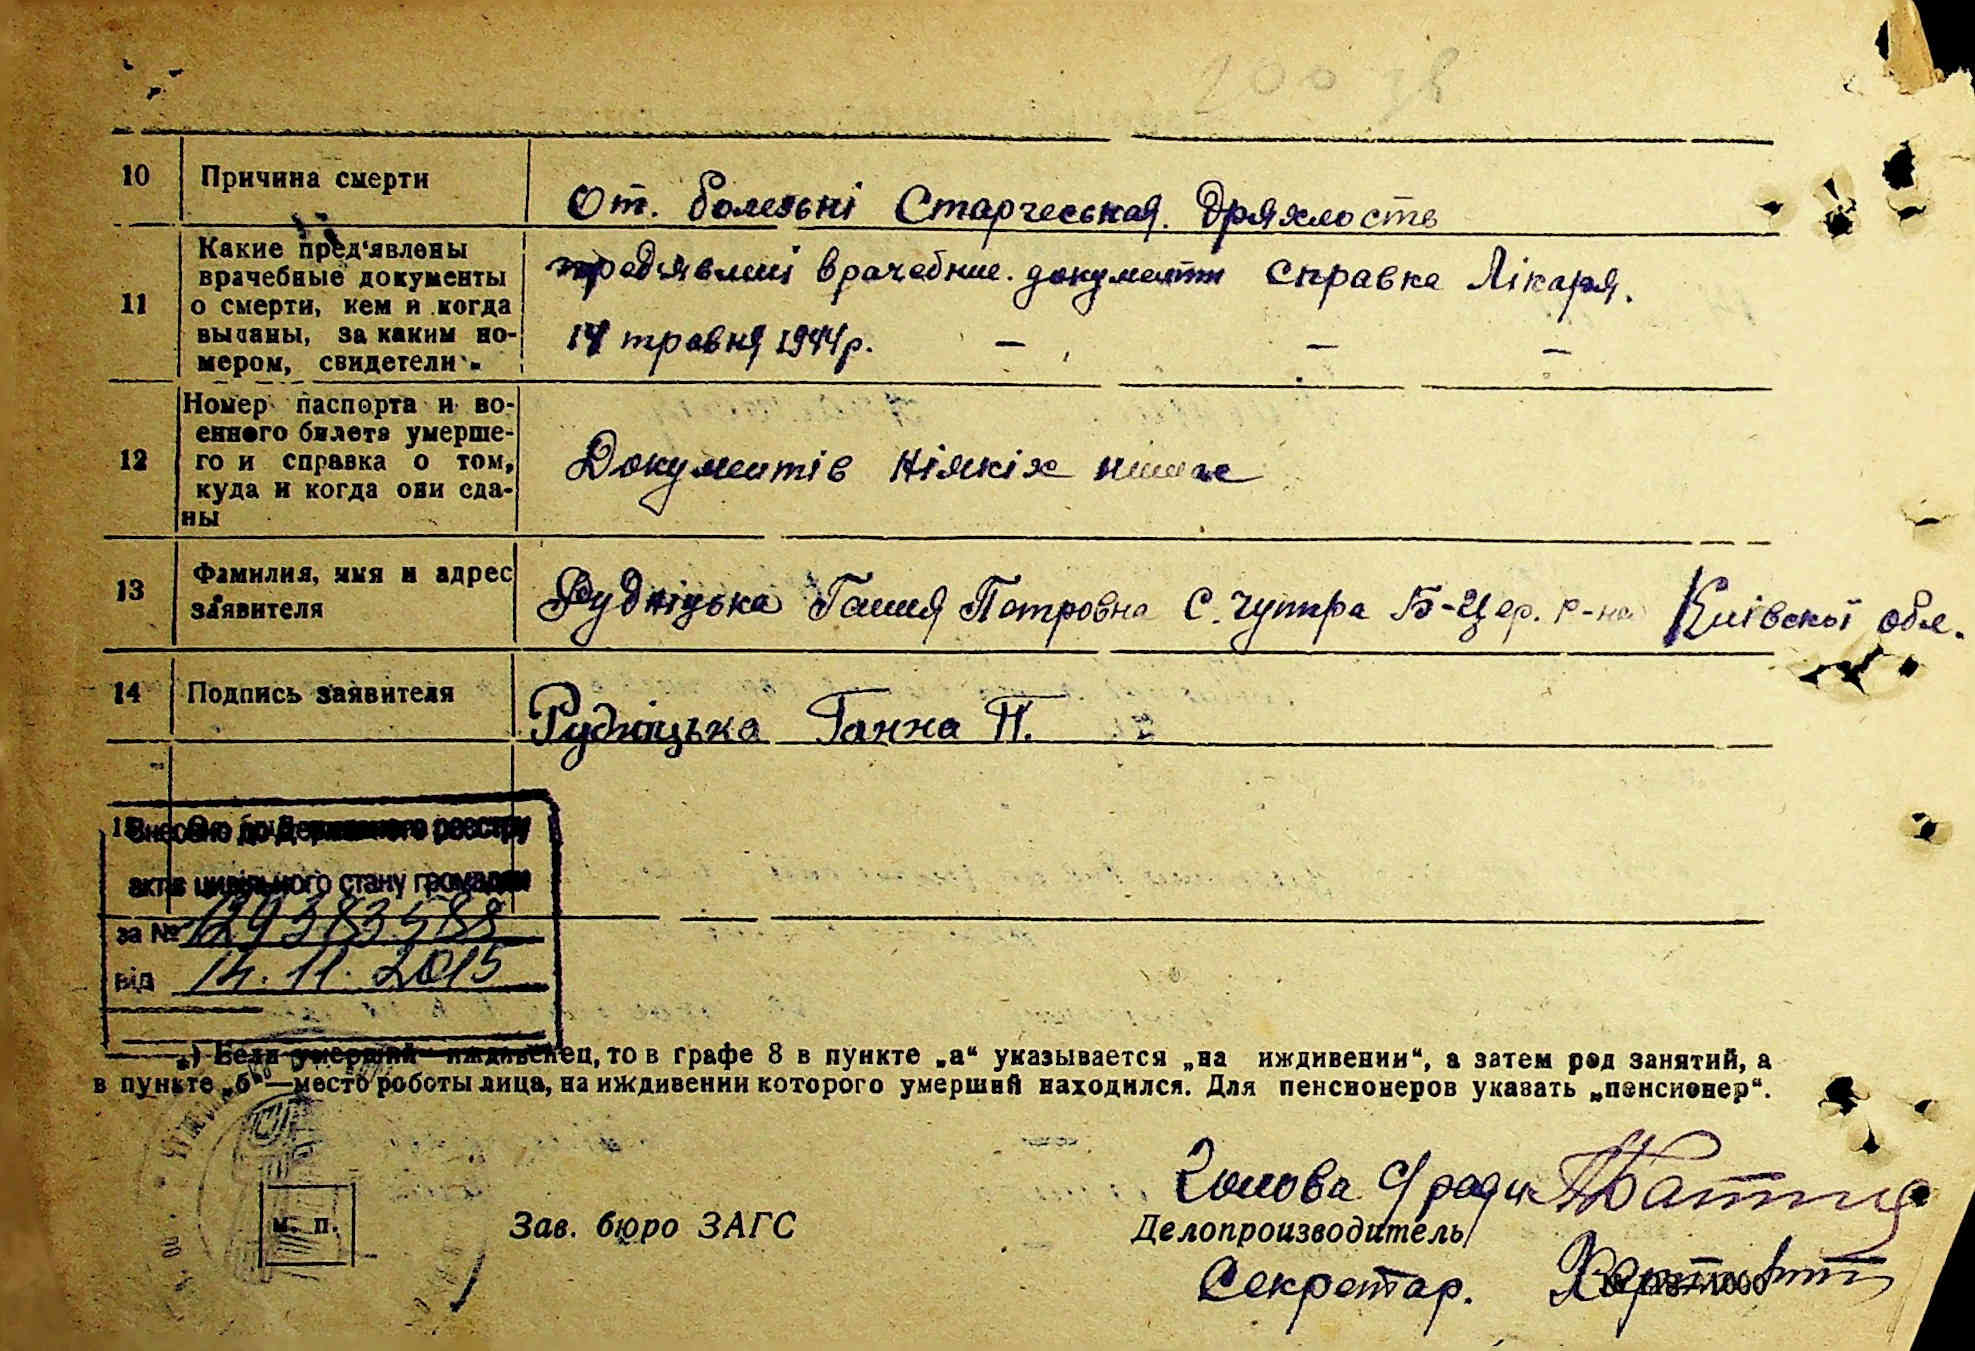 200 зв
10 Причина смерти От.болезьні Старческая. Дряхлость
11 Какие пред'явлены
врачебные документы
о смерти, кем и когда
выданы, за каким но-
мером, свидетели
предявлині врачебние. документи справка Лікаря.
14 травня 1944р. — — —
12 Номер паспорта и во-
енного билета умерше-
го и справка о том,
куда и когда они сда-
ны
Документів ніякіх немає
13 Фамилия, имя и адрес
заявителя
Рудніцька Ганна Петровна С. Чупира Б-Цер. р-на Київскої обл.
14 Подпись заявителя Рудніцька Ганна П.
15
Внесено до Державного реєстру
актів цивільного стану громадян
за № 129383588
від 14.11.2015
*) Если умерший иждивенец, то в графе 8 в пункте „а“ указывается „на иждивении“, а затем род занятий, а
в пункте „б“—место роботы лица, на иждивении которого умерший находился. Для пенсионеров указать „пенсионер“.
Голова С/ради
м. п. Зав. бюро ЗАГС Делопроизводитель
Секретар.